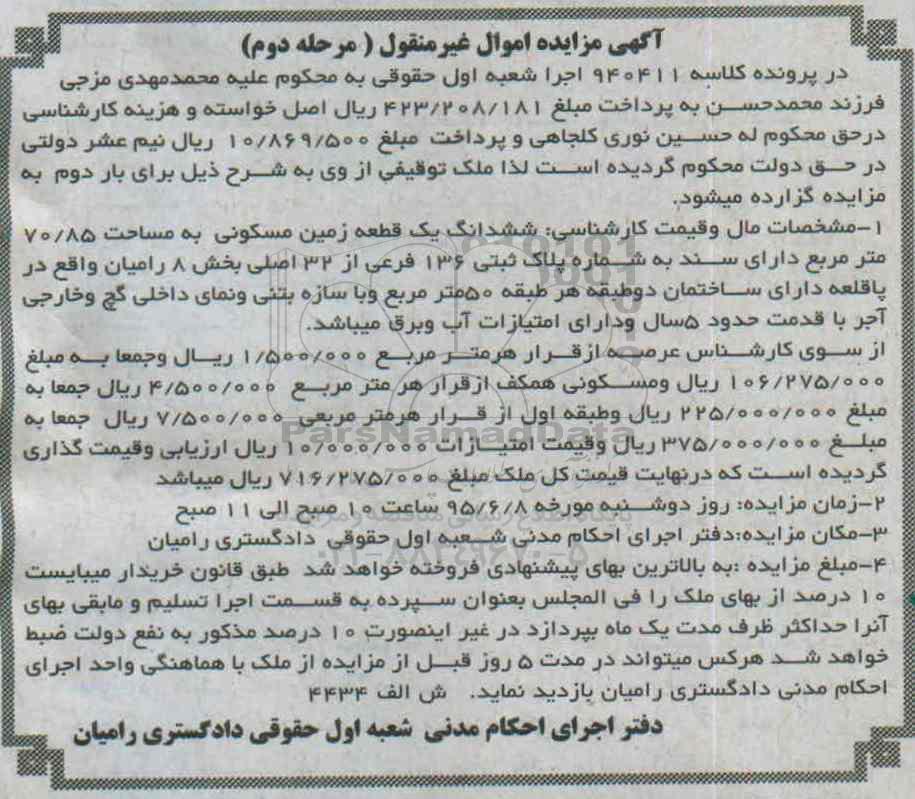 آگهی مزایده اموال غیرمنقول ( مرحله دوم)
در پرونده کلاسه ۹۴۰۴۱۱ اجرا شعبه اول حقوقی به محکوم علیه محمدمهدی مزجی
فرزند محمدحسن به پرداخت مبلغ ۴۲۳/۲۰۸/۱۸۱ ریال اصل خواسته و هزینه کارشناسی
درحق محکوم له حسین نوری کلجاهی و پرداخت مبلغ ۱۰/۸۶۹/۵۰۰ ریال نیم عشر دولتی
در حق دولت محکوم گردیده است لذا ملک توقیفی از وی به شرح ذیل برای بار دوم به
مزایده گزارده میشود.
۱-مشخصات مال وقیمت کارشناسی: ششدانگ یک قطعه زمین مسکونی به مساحت ۷۰/۸۵
متر مربع دارای سند به شماره پلاک ثبتی ۱۳۶ فرعی از ۳۲ اصلی بخش ۸ رامیان واقع در
پاقلعه دارای ساختمان دوطبقه هر طبقه ۵۰متر مربع وبا سازه بتنی ونمای داخلی گچ وخارجی
آجر با قدمت حدود ۵سال ودارای امتیازات آب وبرق میباشد.
از سوی کارشناس عرصه ازقرار هرمتر مربع ۱/۵۰۰/۰۰۰ ریال وجمعا به مبلغ
۱۰۶/۲۷۵/۰۰۰ ریال ومسکونی همکف ازقرار هر متر مربع ۴/۵۰۰/۰۰۰ ریال جمعا به
مبلغ ۲۲۵/۰۰۰/۰۰۰ ریال وطبقه اول از قرار هرمتر مربعی ۷/۵۰۰/۰۰۰ ریال جمعا به
مبلغ ۳۷۵/۰۰۰/۰۰۰ ریال وقیمت امتیازات ۱۰/۰۰۰/۰۰۰ ریال ارزیابی وقیمت گذاری
گردیده است که درنهایت قیمت کل ملک مبلغ ۷۱۶/۲۷۵/۰۰۰ ریال میباشد
۲-زمان مزایده: روز دوشنبه مورخه ۹۵/۶/۸ ساعت ۱۰ صبح الی ۱۱ صبح
۳-مکان مزایده:دفتر اجرای احکام مدنی شعبه اول حقوقی دادگستری رامیان
۴-مبلغ مزایده :به بالاترین بهای پیشنهادی فروخته خواهد شد طبق قانون خریدار میبایست
۱۰ درصد از بهای ملک را فی المجلس بعنوان سپرده به قسمت اجرا تسلیم و مابقی بهای
آنرا حداکثر ظرف مدت یک ماه بپردازد در غیر اینصورت ۱۰ درصد مذکور به نفع دولت ضبط
خواهد شد هرکس میتواند در مدت ۵ روز قبل از مزایده از ملک با هماهنگی واحد اجرای
احکام مدنی دادگستری رامیان بازدید نماید. ش الف ۴۴۳۴
دفتر اجرای احکام مدنی شعبه اول حقوقی دادگستری رامیان
ParsNamadData
۰۲۱-۸۸۳۴۹۶۷۰-۵